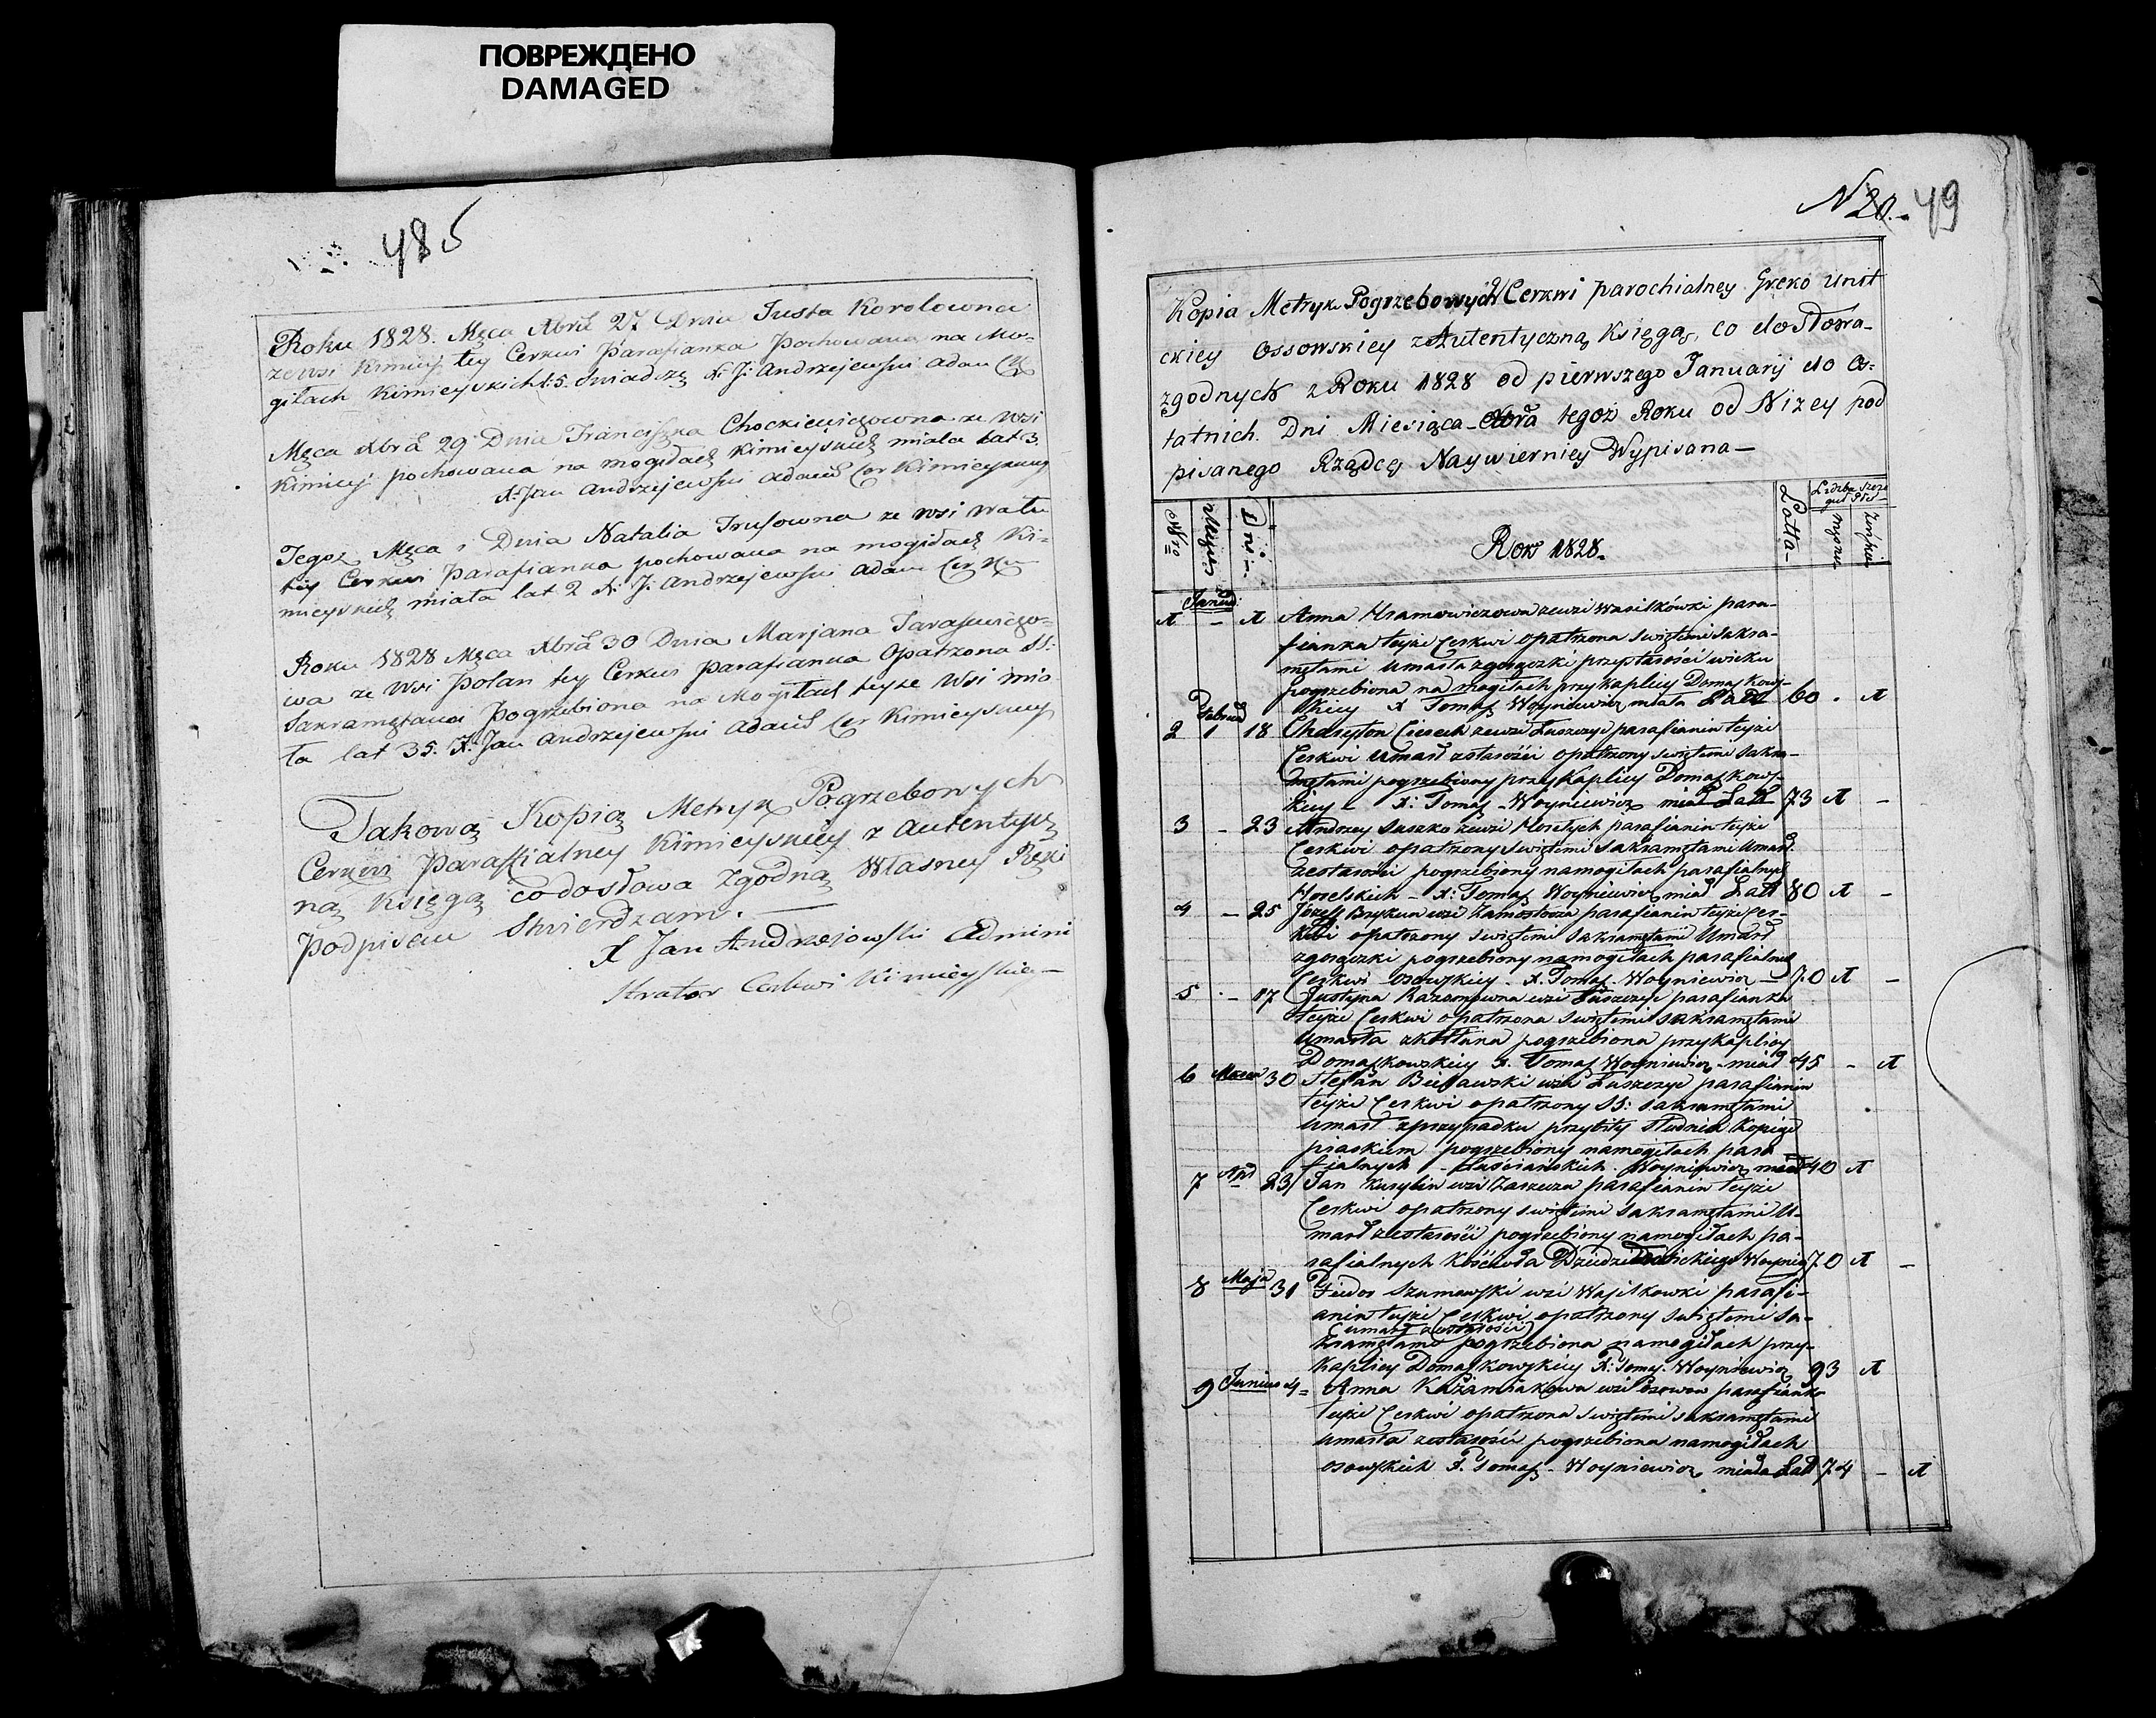 ПОВРЕЖДЕНО
DAMAGED
485
Roku 1828. Męca Xbrā 27 Dnia Justa Korolowna
ze wsi Kimiey tey Cerkwi Parafianka Pochowana na Mo-
giłach Kimieyskich l: 5. Swiadczę X. J: Andrzejewski Adm
Męca Xbrā 29 Dnia Franciszka Chockiewiczowna ze Wsi
Kimiey pochowana na mogiłach Kimieyskich miała Lat 3.
X: Jan Andrzejewski Cer Kimieyskiey
Tegoz Męca i Dnia Natalia Trusowna ze wsi
tey Cerkwi Parafianka pochowana na mogiłach Ki-
mieyskich miała lat 2 X: J: Andrzejewski Cer
Roku 1828 Męca Xbrā 30 Dnia Marjana Tarasewiczo-
wa ze Wsi Polan tey Cerkwi Parafianka Opatrzona SS:
Sakramętami Pogrzebiona na Mogiłach teyze Wsi mia
ła lat 35. X: Jan Andrzejewski Cer Kimieyskiey
Takową Kopią Metryk Pogrzebowych
Cerkwi Parafialney Kimieyskiey z Autentycz
ną Księgą co do słowa Zgodną Własney Ręki
Podpisem Stwierdzam.
X Jan Andrzejowski Admini
strator Cerkwi Kimieyskiey
N 20. 49
Kopia Metryk Pogrzebowych Cerkwi parochialney Greko Unit
ckiey Ossowskiey z Autentyczną Księgą, co do Słowa-
zgodnych z Roku 1828 od pierwszego Januarij do Os-
tatnich Dni Miesiąca Xbra tegoż Roku od Nizey pod
pisanego Rządcę Naywierniey Wypisana
Nro Miesiąc Dni Rok 1828. Latta Liczba
męzka żeńska
Januar
1 - 1 Anna zewzi Wasilkówki para-
fianka teyże Cerkwi opatrzona swiętemi sakra-
mętami umarła zgorączki wieku
pogrzebiona na mogiłach przy kaplicy Domaszkows-
kiey X Tomasz Woyniewicz miała Latt 60 . 1
Februar
2 1 18 Chariton zewzi Łuszczyc parafianin teyże
Cerkwi umarł zstarości opatrzony swiętemi sakra-
mętami pogrzebiony przy kaplicy Domaszkows-
kiey X: Tomasz Woyniewicz miał Latt 73 1 -
3 - 23 Andrzey Suszko zewzi parafianin teyże
Cerkwi opatrzony swiętemi sakramętami umarł
zestarości pogrzebiony namogiłach parafialnych
X: Tomasz Woyniewicz miał Latt 80 1 -
4 - 25 Józeff Brykun wzi Zamostocza parafianin teyże Cer-
kwi opatrzony swiętemi sakramętami umarł
zgorączki pogrzebiony namogiłach parafialnych
Cerkwi osowskiey X. Tomasz Woyniewicz - 70 1 -
5 - 17 Justyna wzi Łuszczyc parafianka
teyże Cerkwi opatrzona swiętemi sakramętami
umarła zkołtuna pogrzebiona przykaplicy
Domaszkowskiey X. Tomasz Woyniewicz miała 45 - 1
6 Marca 30 Stefan Bielawski wzi Łuszczyc parafianin
teyże Cerkwi opatrzony SS: sakramętami
umarł zprzypadku przybity studnią kopiąc
piaskiem pogrzebiony namogiłach para
fialnych Woyniewicz miał 40 1
7 Apr 23 Jan Kurylin wzi parafianin teyże
Cerkwi opatrzony swiętemi sakramętami u-
marł zestarości pogrzebiony namogiłach pa-
rafialnych kościoła Woyniew 70 1 -
8 Maja 31 Fiedor Szumowski wzi Wasilkowki parafi-
anin teyże Cerkwi opatrzony swiętemi sa-
(umarł zestarości)
kramętami pogrzebiona namogiłach przy-
kaplicy Domaszkowskiey X: Tomasz Woyniewicz 93 1
9 Junius 4 Anna Kaźimiakowa wzi parafianka
teyże Cerkwi opatrzona swiętemi sakramętami
umarła zestarości pogrzebiona namogiłach
osowskich X. Tomasz Woyniewicz miała Latt 74 - 1